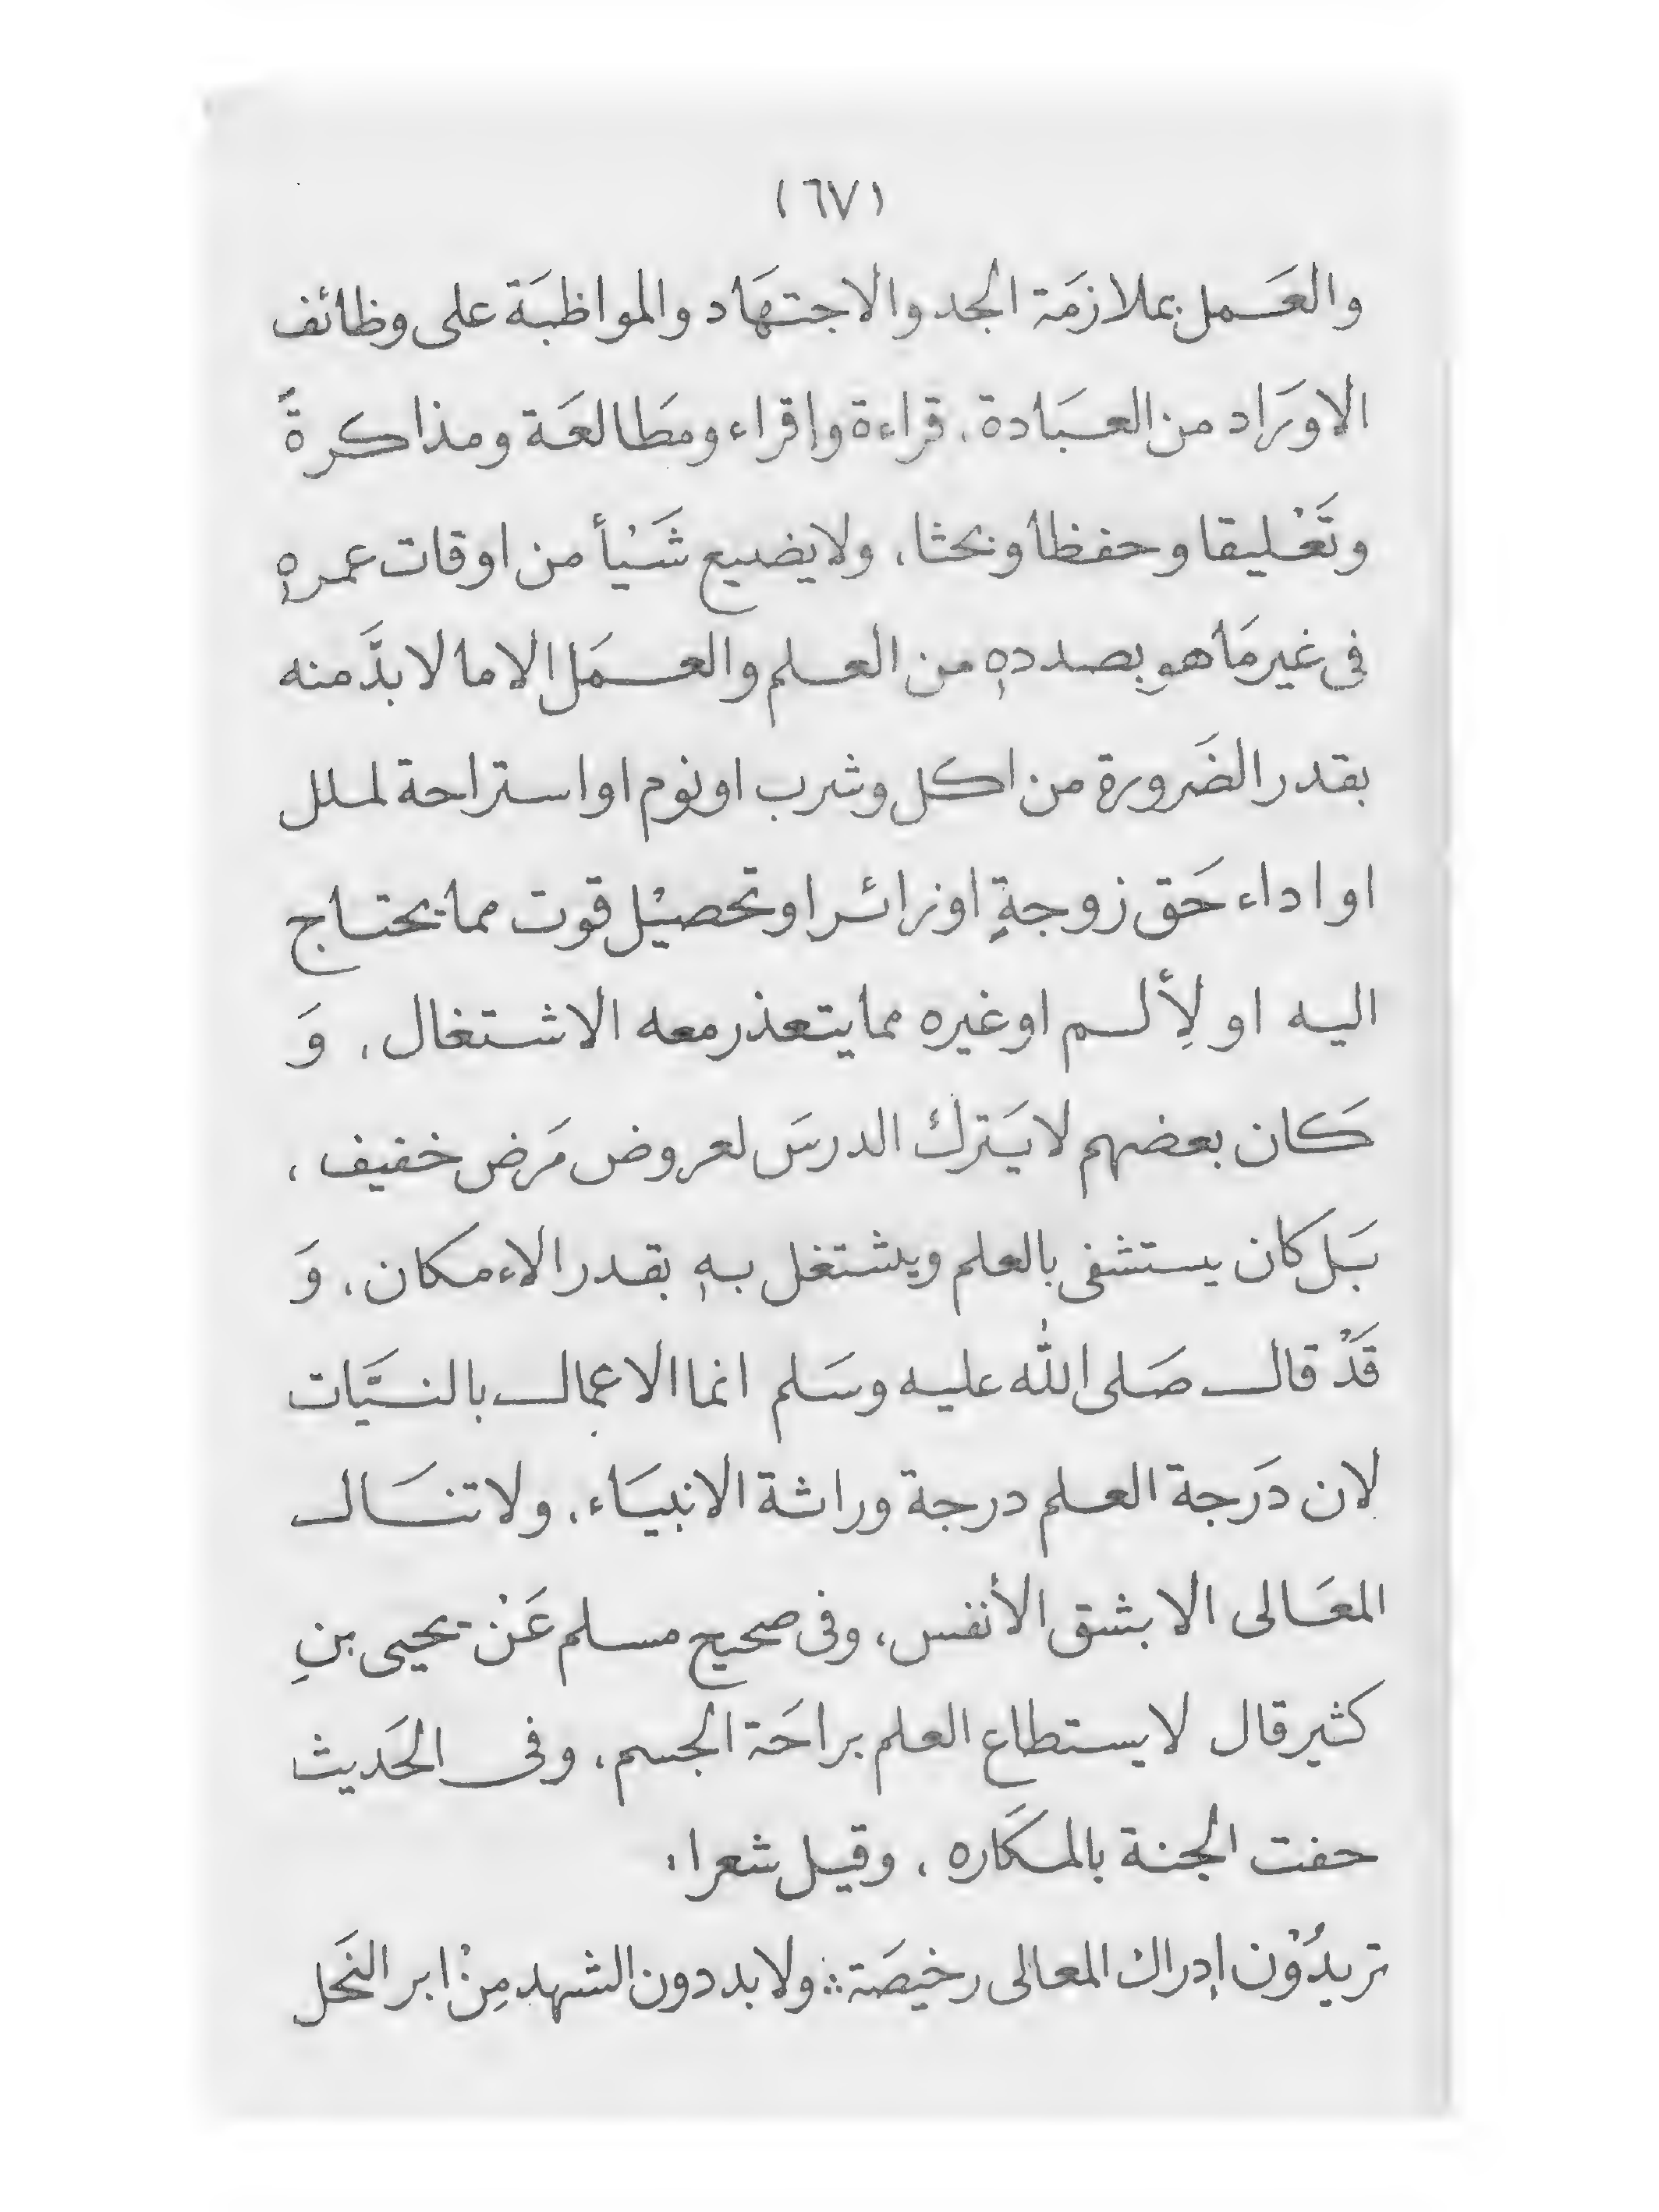 (٦٧)
والعَمل بملازمَة الجد والاجتهَاد والمواظبَة على وظائف
الاورَاد من العبَادة، قراءة واقراء ومطَالعَة ومذاكرةً
وتَعْليقا وحفظا وبحثا، ولا يضيع شَيْأ من اوقات عمره
فى غير مَا هو بِصدده من العلم والعمَل الا ما لا بدَّ منه
بقدر الضَرورة من اكل وشرب او نوم او استراحة لملل
او اداء حَق زوجةٍ او زائر او تحصيْل قوت مما يحتاج
اليه او لِألم او غيره مما يتعذر معه الاشتغال، وَ
كَان بعضهم لا يَترك الدرسَ لعروض مَرض خفيف،
بَل كان يستشفى بالعلم ويشتغل به بقدر الاءمكان، وَ
قَدْ قال صَلى الله عليه وسَلم انما الاعمال بالنيَّات
لان دَرجة العلم درجة وراثة الانبيَاء، ولا تنَال
المعَالى الا بشق الأنفس، وفى صحيح مسلم عَنْ يحيى بنِ
كثير قال لا يستطاع العلم براحَة الجسم، وفى الحَديث
حفت الجنة بالمكَاره، وقيل شعرا،
تريدُوْن إدراك المعالى رخيصَة ؞ ولا بد دون الشهد مِنْ ابر النَحل